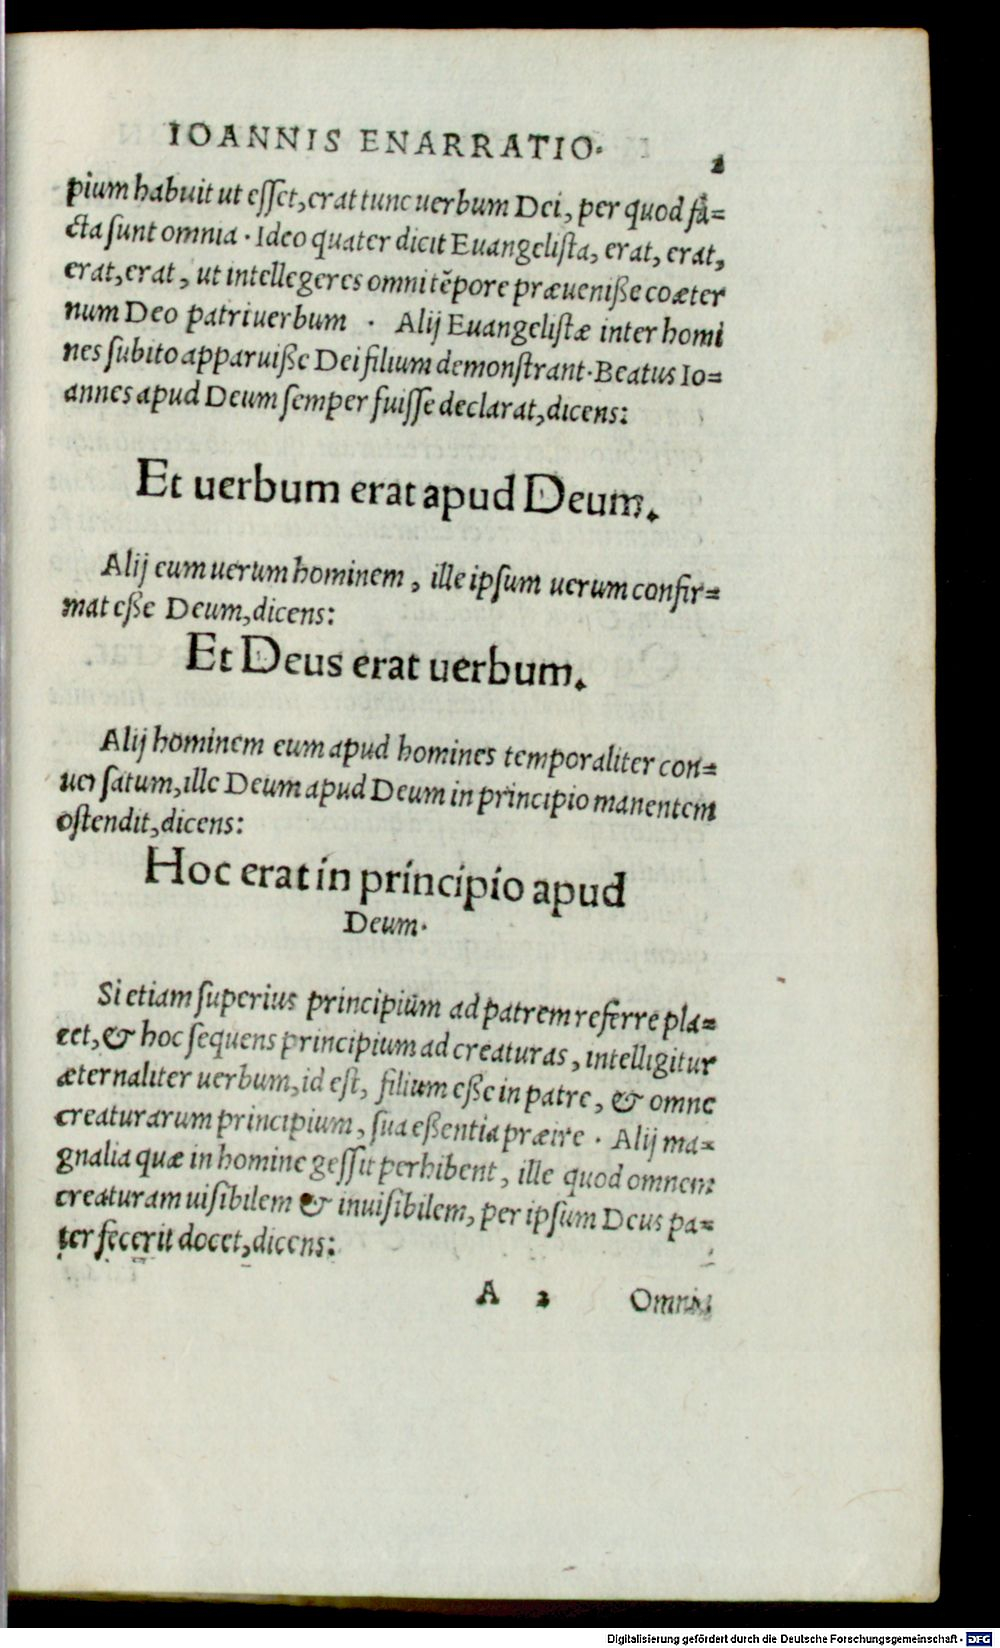 IOANNIS ENARRATIO.
2
pium habuit ut esset, erat tunc uerbum Dei, per quod fa=
cta sunt omnia. Ideo quater dicit Euangelista, erat, erat,
erat, erat, ut intellegeres omni tẽpore præueniße coæter
num Deo patri uerbum . Alij Euangelistæ inter homi
nes subito apparuiße Dei filium demonstrant. Beatus Io=
annes apud Deum semper fuisse declarat, dicens:
Et uerbum erat apud Deum.
Alij eum uerum hominem, ille ipsum uerum confir=
mat eße Deum, dicens:
Et Deus erat uerbum.
Alij hominem eum apud homines temporaliter con=
uersatum, ille Deum apud Deum in principio manentem
ostendit, dicens:
Hoc erat in principio apud
Deum.
Si etiam superius principiũm ad patrem referre pla=
cet, & hoc sequens principium ad creaturas, intelligitur
æternaliter uerbum, id est, filium eße in patre, & omne
creaturarum principium, sua eßentia præire. Alij ma=
gnalia quæ in homine gessit perhibent, ille quod omnem
creaturam uisibilem & inuisibilem, per ipsum Deus pa=
ter fecerit docet, dicens:
A 2 Omnia
Digitalisierung gefördert durch die Deutsche Forschungsgemeinschaft - DFG